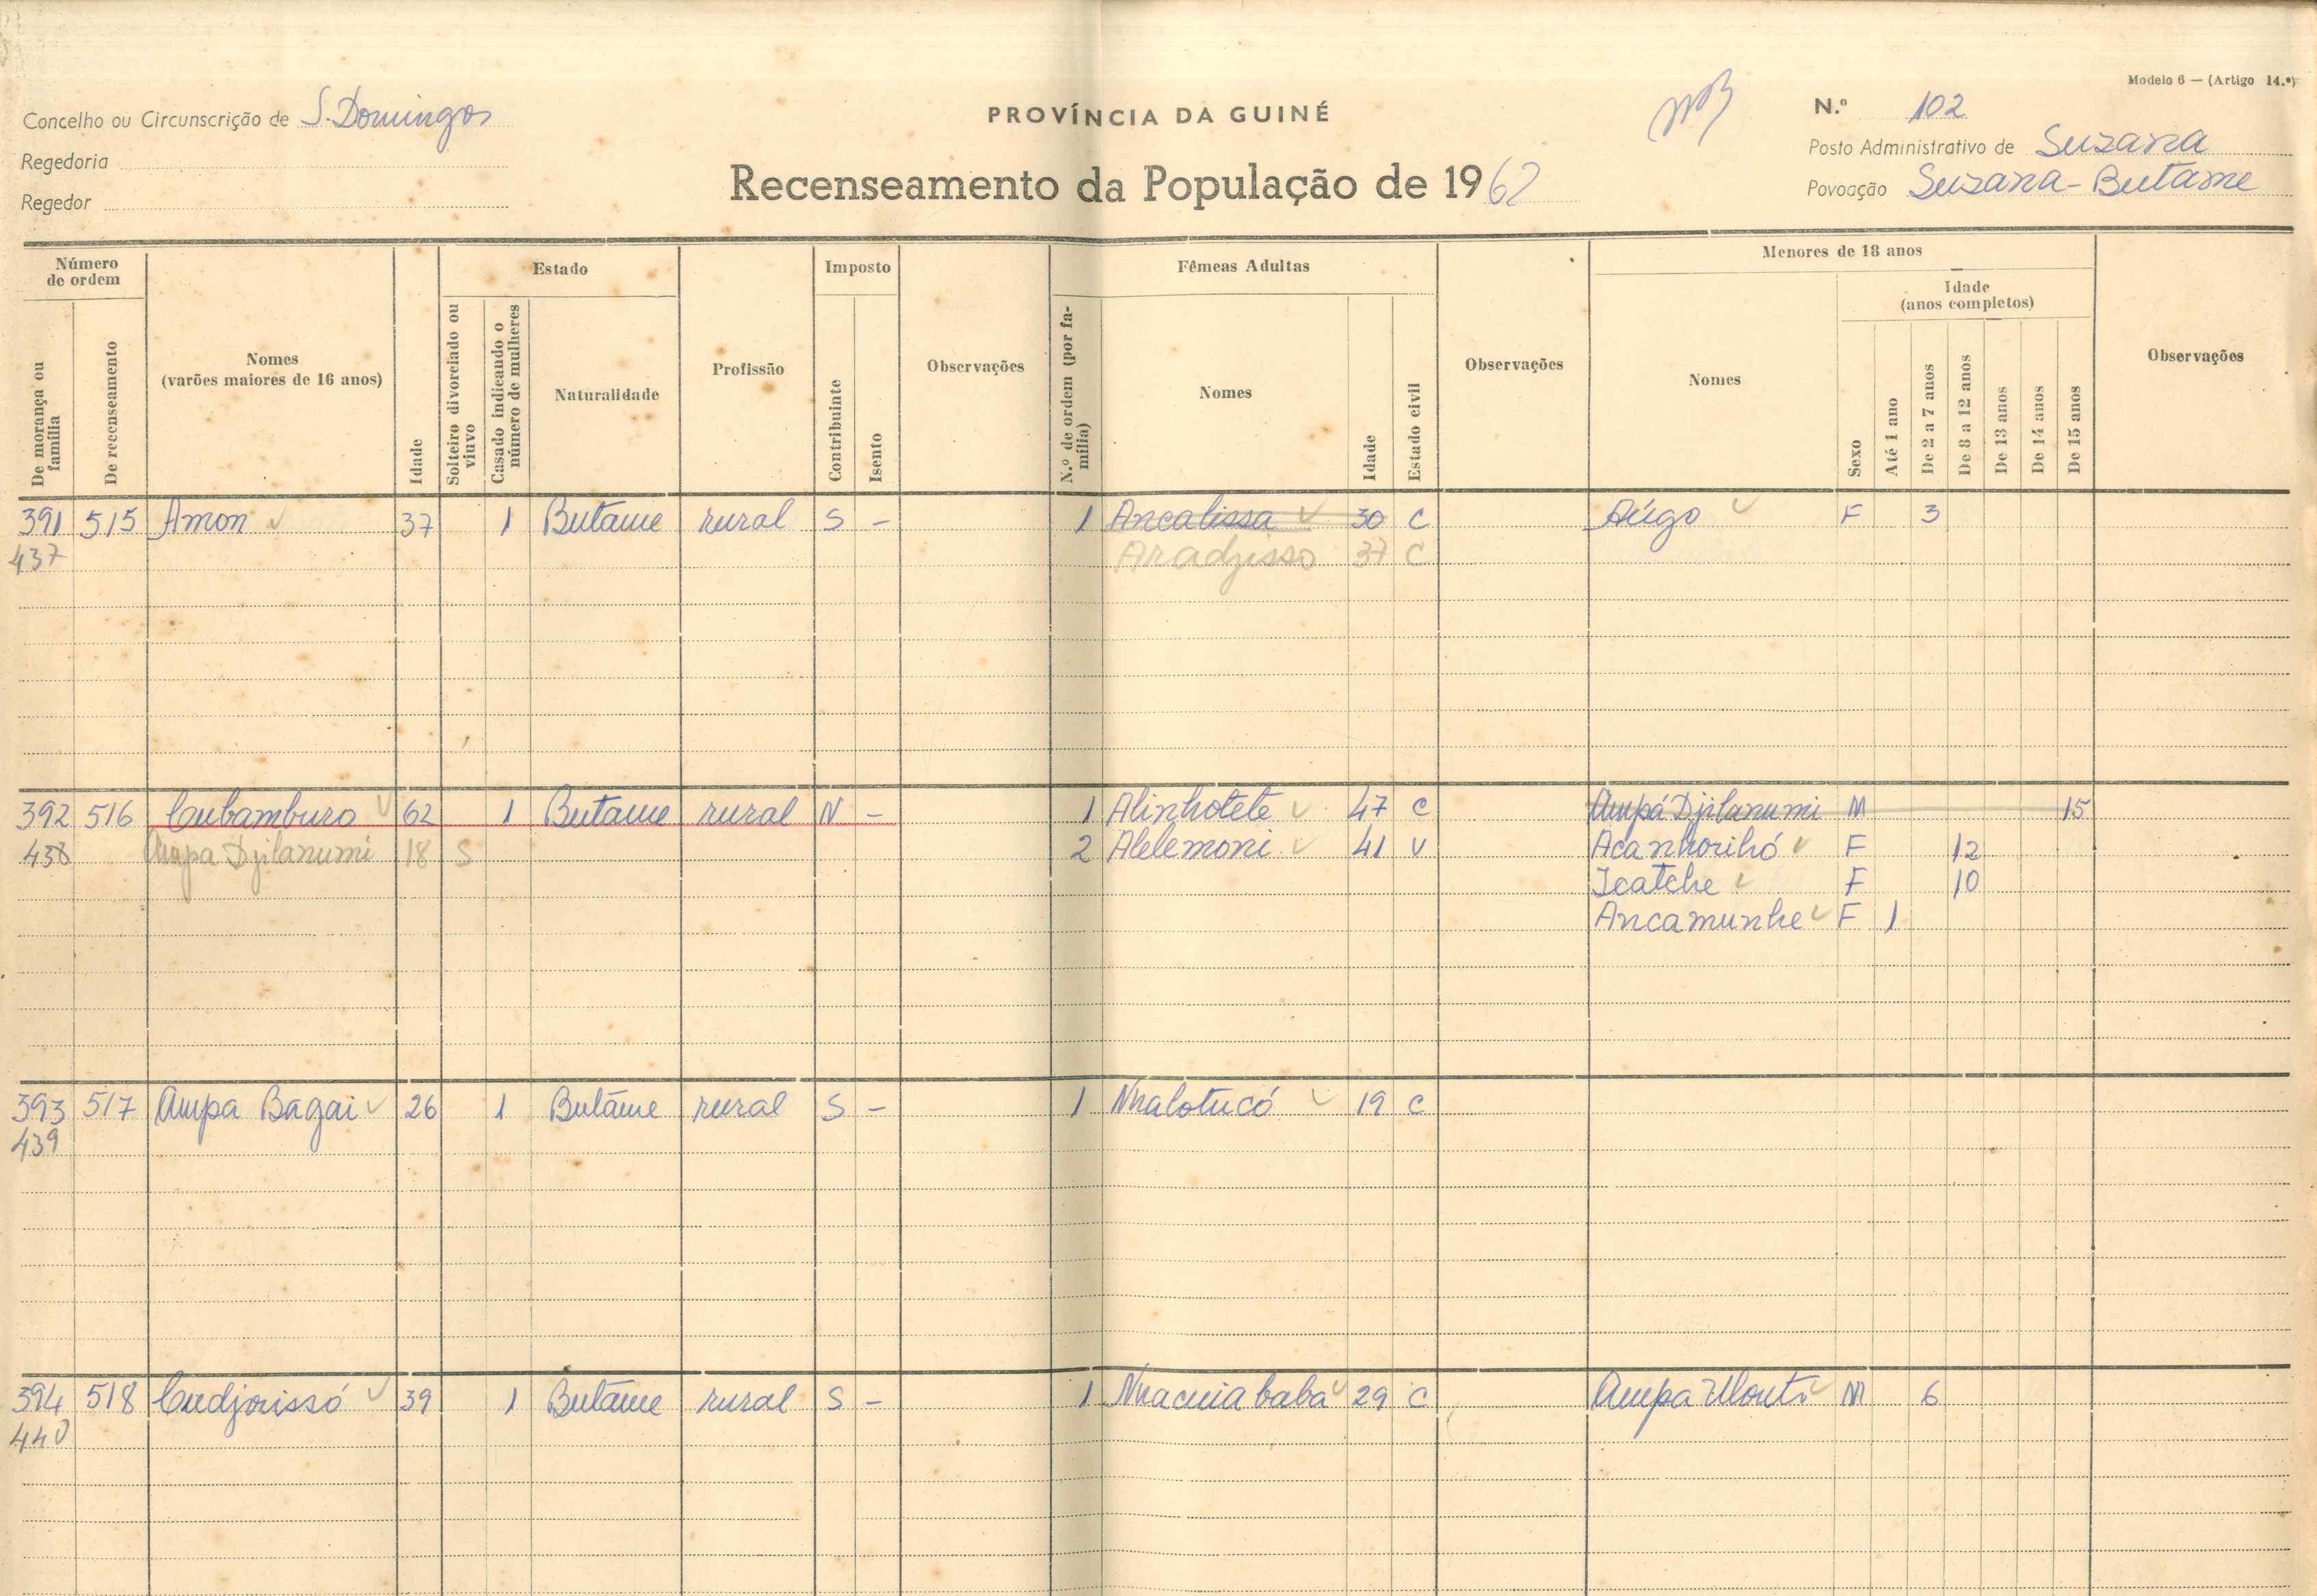 Modelo 6 — (Artigo 14.º)
Concelho ou Circunscrição de S. Domingos
PROVÍNCIA DA GUINÉ
N.º 102
Regedoria
Posto Administrativo de Suzana
Regedor
Recenseamento da População de 1962
Povoação Suzana-Butame
Número de ordem
De morança ou família
De recenseamento
Nomes
(varões maiores de 16 anos)
Idade
Estado
Solteiro divorciado ou viuvo
Casado indicando o número de mulheres
Naturalidade
Profissão
Imposto
Contribuinte
Isento
Observações
N.º de ordem (por família)
Fêmeas Adultas
Nomes
Idade
Estado civil
Observações
Menores de 18 anos
Nomes
Sexo
Idade
(anos completos)
Até 1 ano
De 2 a 7 anos
De 8 a 12 anos
De 13 anos
De 14 anos
De 15 anos
Observações
391 515 Amon 37 1 Butame rural S - 1 Ancalissa 30 C Aúgo F 3
437 Aradjisso 37 C
392 516 Cubamburo 62 1 Butame rural N - 1 Alinhotete 47 C Ampá Djilanumi M 15
438 Ampa Djilanumi 18 S 2 Alelemoni 41 V Acanhorihó F 12
Icatche F 10
Ancamunhe F 1
393 517 Ampa Bagai 26 1 Butame rural S - 1 Nhalotucó 19 C
439
394 518 Cudjorissó 39 1 Butame rural S - 1 29 C Ampa M 6
440